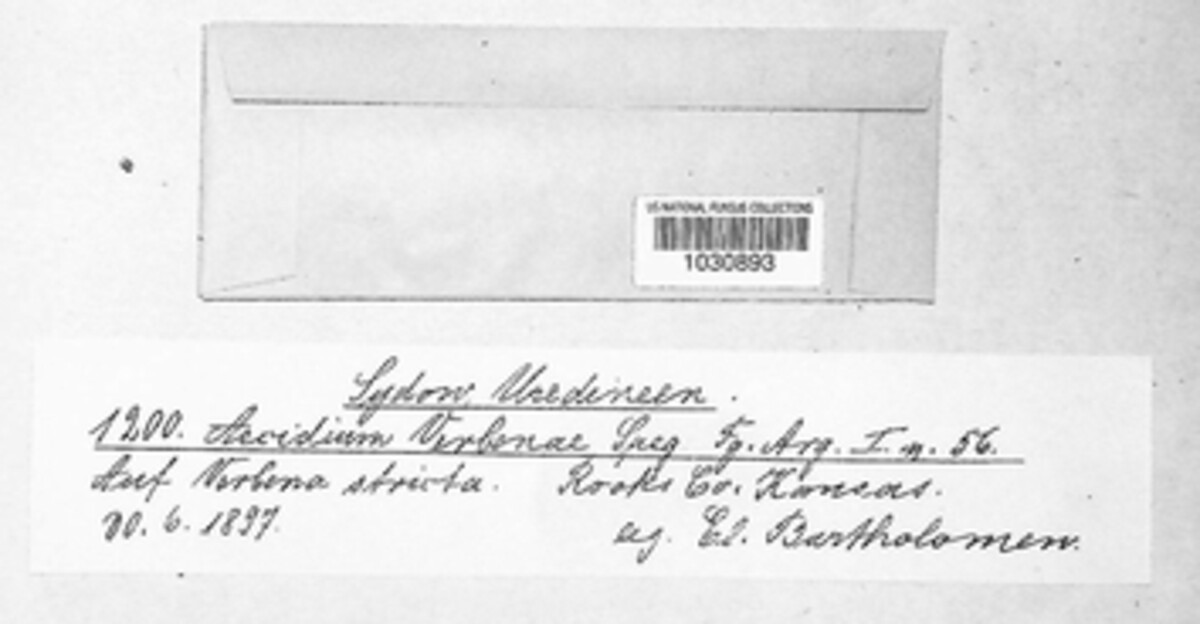 US NATIONAL FUNGUS COLLECTIONS
1030893
Sydow, Uredineen.
1200. Aecidium Verbenae Speg. Fg. Arg. I. n. 56.
Auf Verbena stricta. Rooks Co. Kansas.
6. 1897. leg. El. Bartholomew.